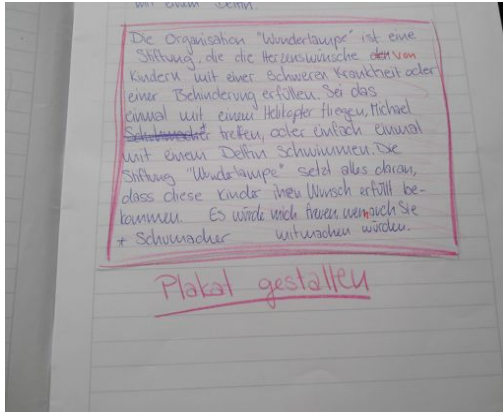 mit einem Delfin.
Die Organisation "Wunderlampe" ist eine
Stiftung, die die Herzenswünsche den von
Kindern mit einer schweren Krankheit oder
einer Behinderung erfüllen. Sei das
einmal mit einem Helikopter fliegen, Michael
Schuhmacher* treffen, oder einfach einmal
mit einem Delfin schwimmen. Die
Stiftung "Wunderlampe" setzt alles daran,
dass diese Kinder ihren Wunsch erfüllt be-
kommen. Es würde mich freuen wenn auch Sie
* Schumacher mitmachen würden.
Plakat gestalten